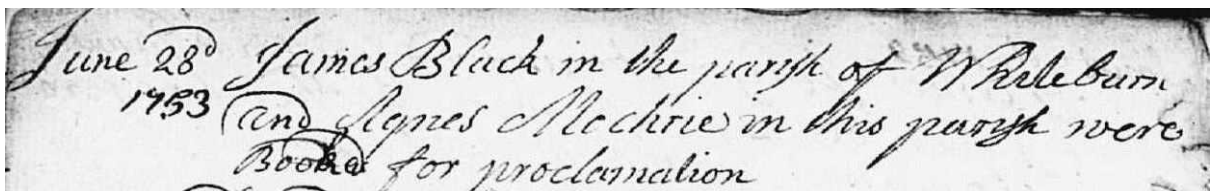 June 28d James Black in the parish of Whiteburn
1753 and Agnes Mochrie in this parish were
Booked for proclamation